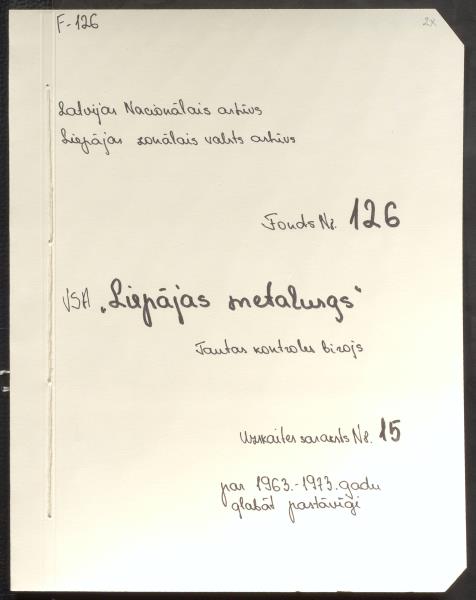 F-126
2x
Latvijas Nacionālais arhīvs
Liepājas zonālais valsts arhīvs
Fonds Nr. 126
VSA „Liepājas metalurgs"
Tautas kontroles birojs
Uzskaites saraksts Nr. 15
par 1963.-1973. gadu
glabāt pastāvīgi